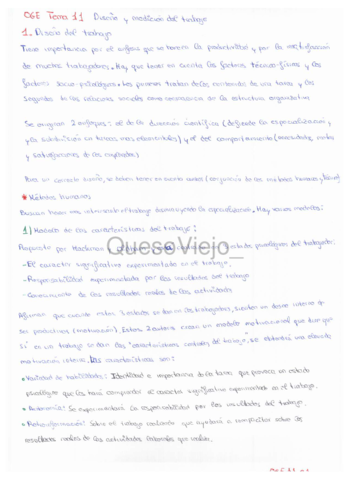 OGE Tema 11 Diseño y medición del trabajo
1. Diseño del trabajo
Tiene importancia por el enfoque que se tenemos la productividad y por la motivación
de muchos trabajadores. Hay que tener en cuenta los factores técnico-físicos y los
factores socio-psicológicos. Los primeros tratan de los contenidos de una tarea y los
segundos las relaciones sociales como consecuencia de la estructura organizativa
Se originan 2 enfoques: el de la dirección científica (defiende la especialización
y la subdivisión en tareas más elementales) y el del comportamiento (necesidades, metas
y satisfacciones de los empleados)
Para un correcto diseño, se deben tener en cuenta ambos (conjunción de los métodos humanos y físicos)
* Métodos humanos
Buscan hacer más interesante el trabajo disminuyendo la especialización. Hay varios modelos:
1) Modelo de las características del trabajo:
Propuesto por Hackman estado psicológico del trabajador:
- El carácter significativo experimentado en el trabajo.
- Responsabilidad experimentada por los resultados del trabajo
- Conocimiento de los resultados reales de las actividades
Afirman que cuando estos 3 estados se dan en los trabajadores, sienten un deseo interno de
ser productivos (motivación). Estos 2 autores crean un modelo motivacional que dice que
si en un trabajo se dan las "características centrales del trabajo", se obtendrá una elevada
motivación interna. Las características son:
• Variedad de habilidades: Identidad e importancia de la tarea que provoca un estado
psicológico que les hará comprender el carácter significativo experimentado en el trabajo.
• Autonomía: Se experimentará la responsabilidad por los resultados del trabajo.
• Retroinformación: Sobre el trabajo realizado que ayudará a cumplir sobre los
resultados reales de las actividades laborales que realiza.
QueseViejo_